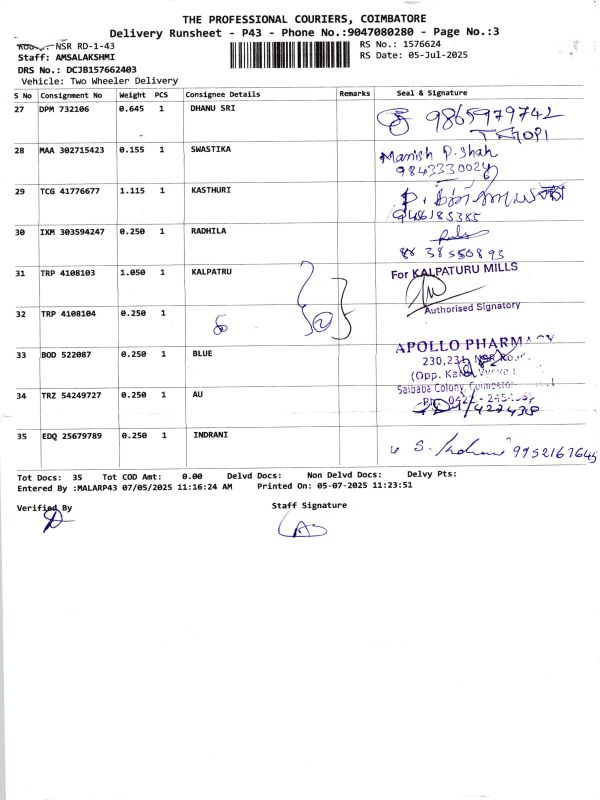 THE PROFESSIONAL COURIERS, COIMBATORE
Delivery Runsheet - P43 - Phone No.:9047080280 - Page No.:3
NSR RD-1-43
RS No.: 1576624
Staff: AMSALAKSHMI
RS Date: 05-Jul-2025
DRS No.: DCJB157662403
Vehicle: Two Wheeler Delivery
S No Consignment No Weight PCS Consignee Details Remarks Seal & Signature
27 DPM 732106 0.645 1 DHANU SRI 9865979742
28 MAA 302715423 0.155 1 SWASTIKA Manish P. Shah
9843330024
29 TCG 41776677 1.115 1 KASTHURI
9486185385
30 IXM 303594247 0.250 1 RADHILA
88 38550893
31 TRP 4108103 1.050 1 KALPATRU For KALPATURU MILLS
Authorised Signatory
32 TRP 4108104 0.250 1
2
33 BOD 522087 0.250 1 BLUE APOLLO PHARMACY
230,231, NSR Road
(Opp.
Saibaba Colony,
34 TRZ 54249727 0.250 1 AU
Ph: 0422 -
35 EDQ 25679789 0.250 1 INDRANI
9952167645
Tot Docs: 35 Tot COD Amt: 0.00 Delvd Docs: Non Delvd Docs: Delvy Pts:
Entered By :MALARP43 07/05/2025 11:16:24 AM Printed On: 05-07-2025 11:23:51
Verified By
Staff Signature